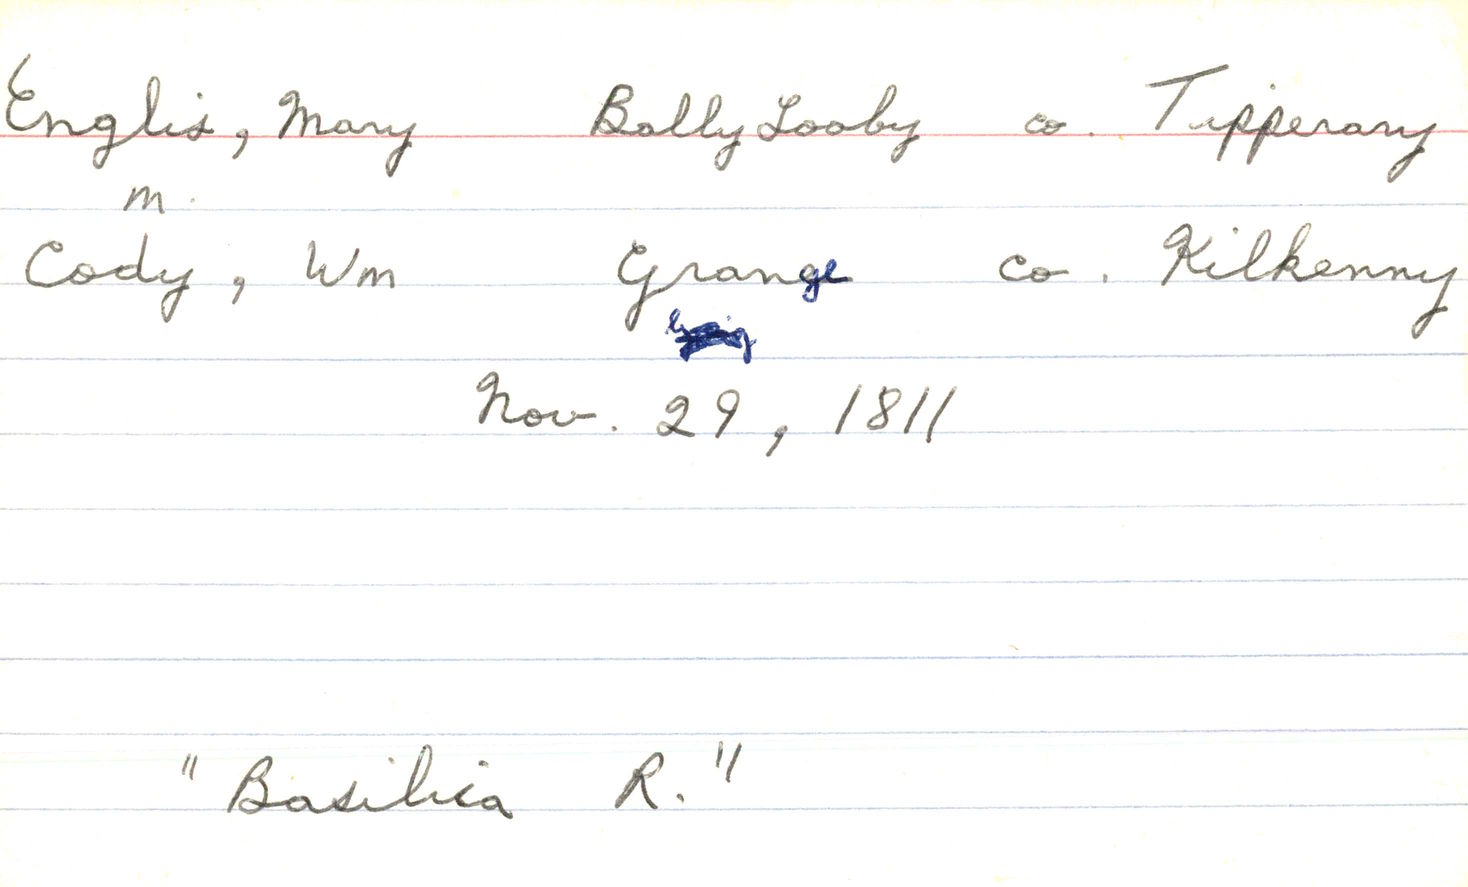 Englis, Mary BallyLooby co. Tipperary
m.
Cody, Wm Grange co. Kilkenny
Nov. 29, 1811
"Basilica R."